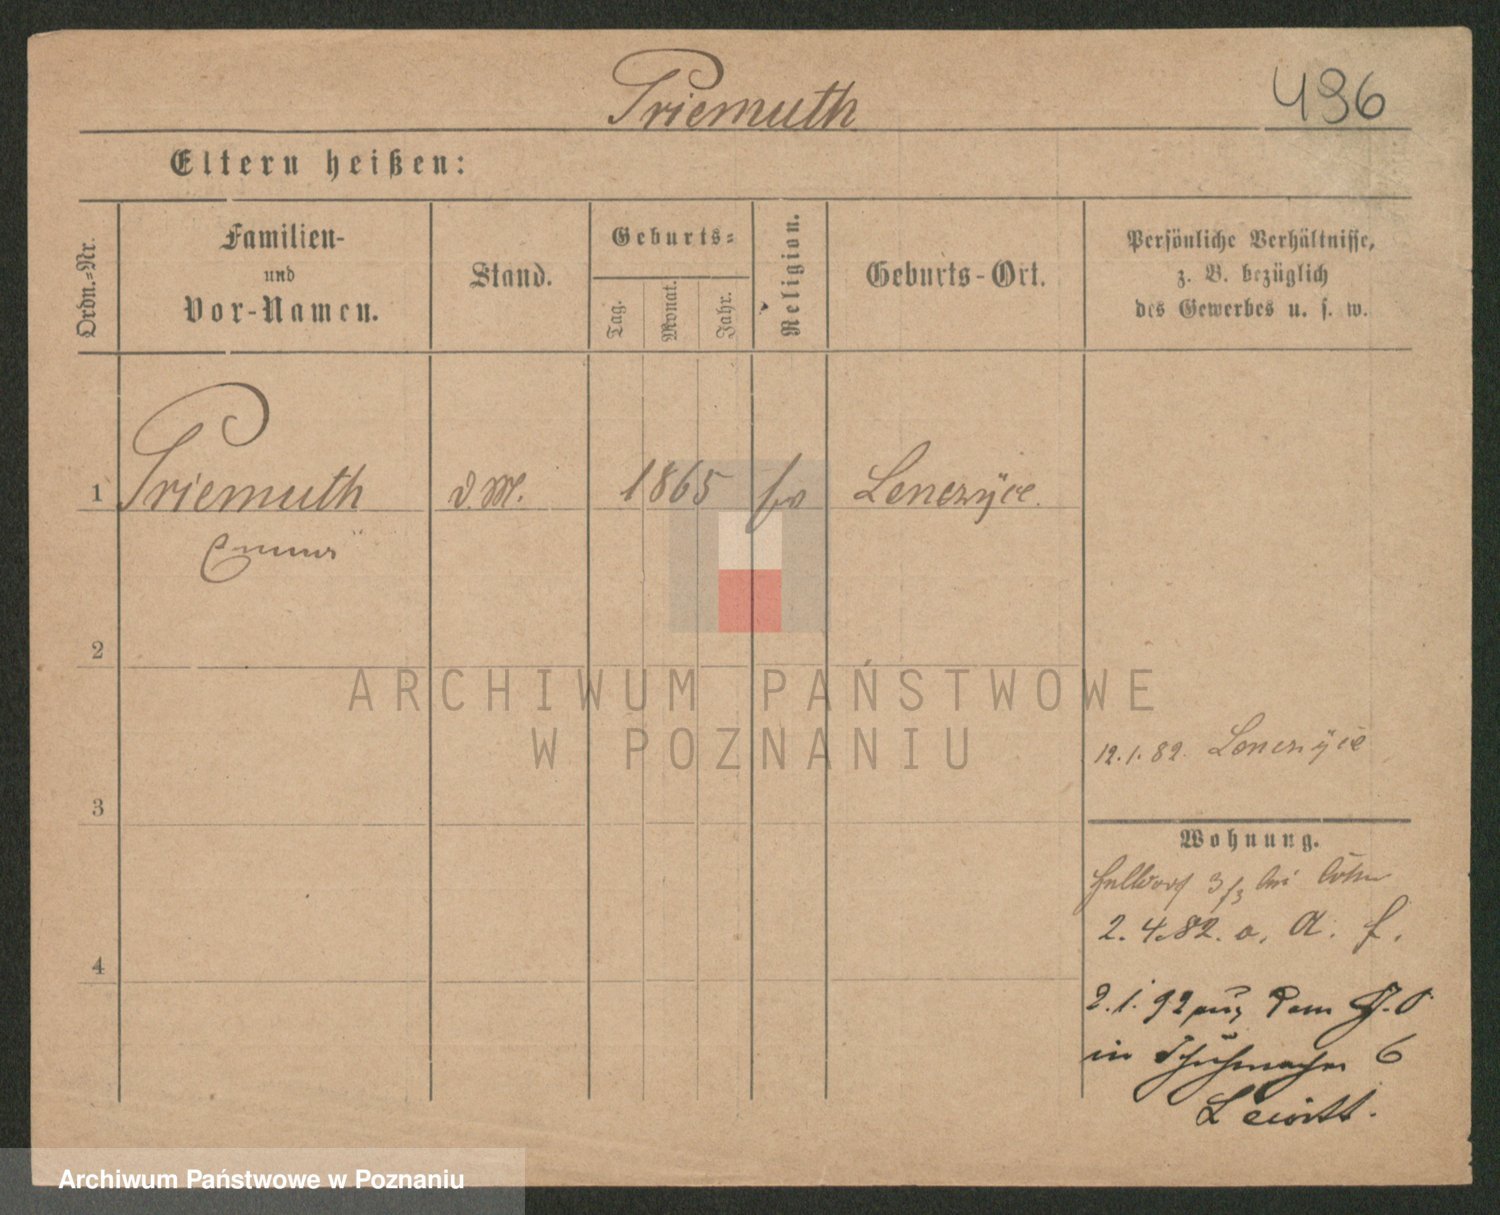 Priemuth
496
Eltern heißen:
Ordn.-Nr.
Familien-
und
Vor-Namen.
Stand.
Geburts-
Tag.
Monat.
Jahr.
Religion.
Geburts-Ort.
Persönliche Verhältnisse,
z. B. bezüglich
des Gewerbes u. s. w.
1 Priemuth d. M. 1865 Lenczyce.
Emma
2
ARCHIWUM PAŃSTWOWE
W POZNANIU
12.1.82. Lenczyce
3
Wohnung.
Halldorf 3/3 bei
2.4.82. a. A. f.
4
2.1.92 aus dem
in Schuhmacher 6
Archiwum Państwowe w Poznaniu